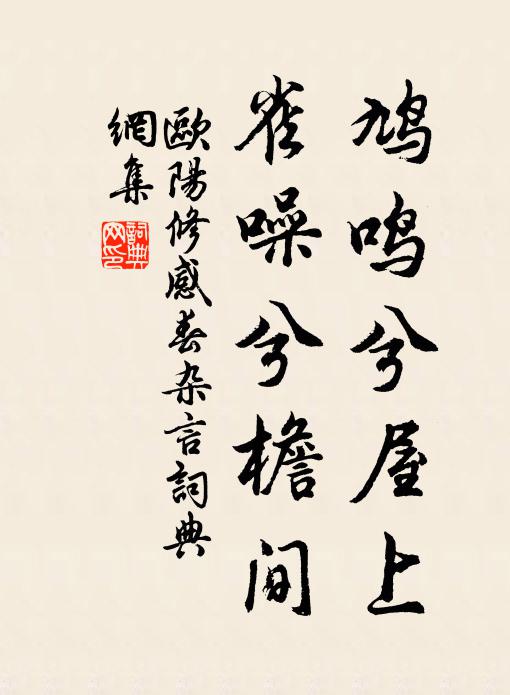 鸠鸣兮屋上
雀噪兮檐间
歐陽修感春杂言詞典
網集
詞典網印